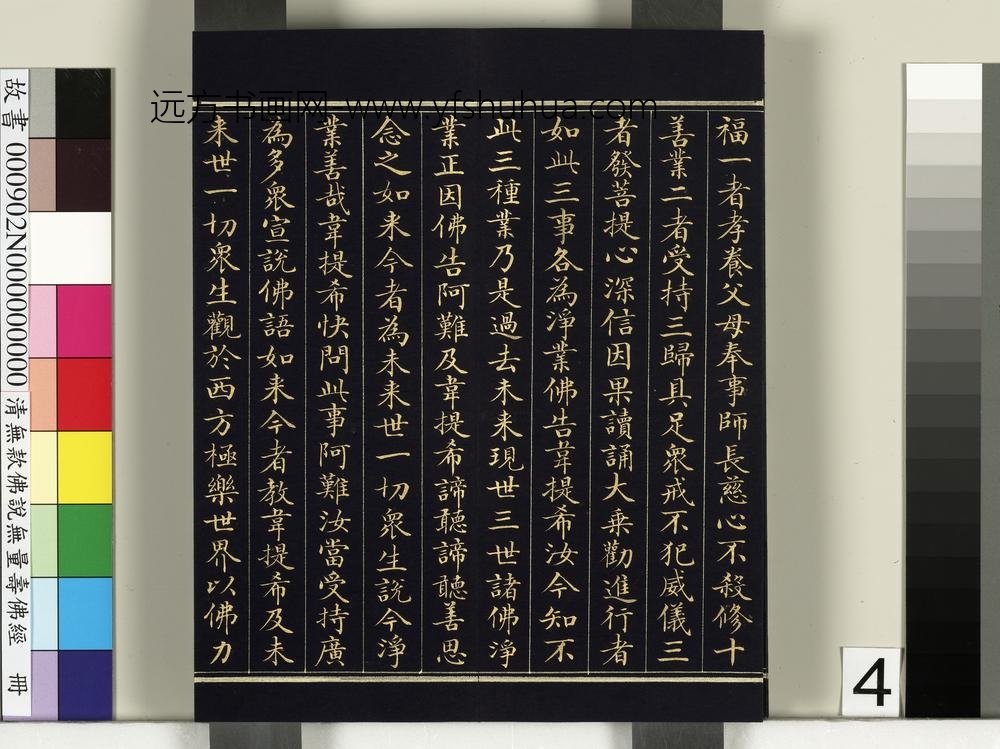 福一者孝養父母奉事師長慈心不殺修十
善業二者受持三歸具足衆戒不犯威儀三
者發菩提心深信因果讀誦大乗勸進行者
如此三事名為淨業佛告韋提希汝今知不
此三種業乃是過去未来現世三世諸佛淨
業正因佛告阿難及韋提希諦聽諦聽善思
念之如来今者為未来世一切衆生說今淨
業善哉韋提希快問此事阿難汝當受持廣
為多衆宣說佛語如来今者教韋提希及未
来世一切衆生觀於西方極樂世界以佛力
远方书画网 www.yfshuhua.com
故書 000902N000000000 清無款佛說無量壽佛經 冊
4